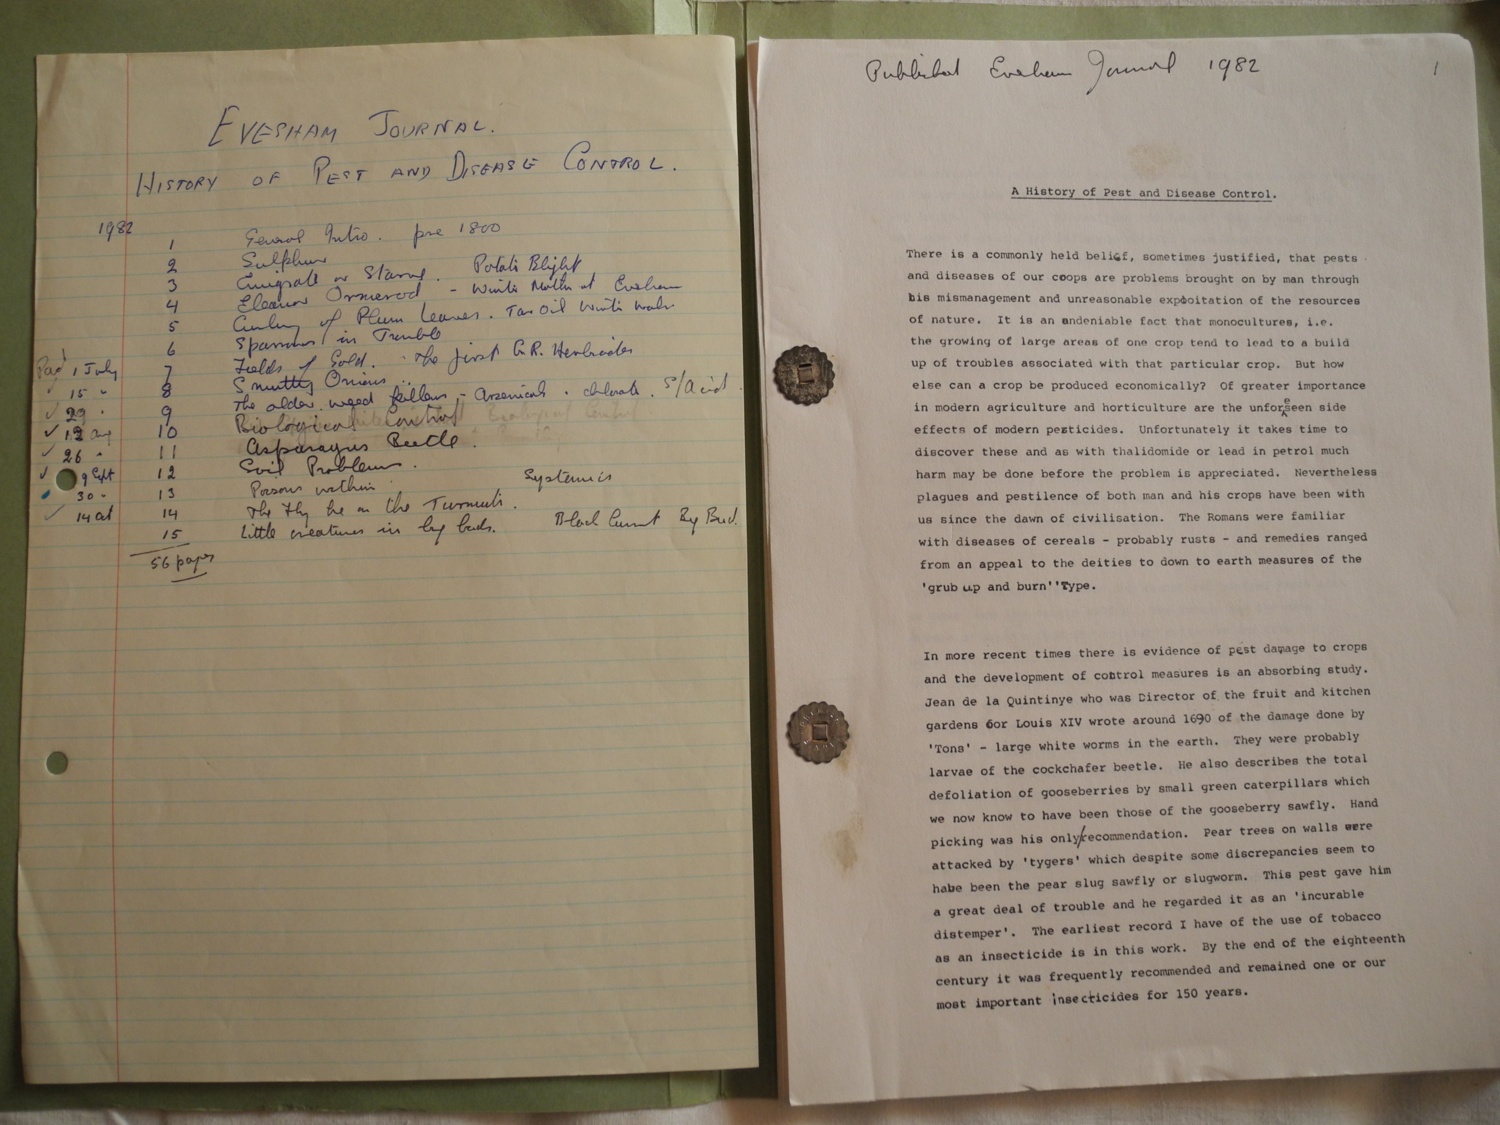 EVESHAM JOURNAL.
HISTORY OF PEST AND DISEASE CONTROL.
1982
1 General Intro. pre 1800
2 Sulphur
3 Emigrate or Starve. Potato Blight
4 Eleanor Ormerod - Winter Moth at Evesham
5 Curling of Plum Leaves. Tar Oil Winter wash
6 Sparrows in Trouble
Paid 1 July 7 Fields of Gold. The first G.R. Herbicides
✓ 15 " 8 Smutty Onions
✓ 29 " 9 The older weed killers - Arsenicals. chlorate. S/Acid.
✓ 12 Aug 10 Biological Control
✓ 26 " 11 Asparagus Beetle.
✓ 9 Sept 12 Soil Problems.
30 " 13 Poisons within Systemics
✓ 14 Oct 14 The Fly be on the Turmuts.
15 Little creatures in big buds. Black Currant Big Bud.
56 pages
Published Evesham Journal 1982
1
A History of Pest and Disease Control.
There is a commonly held belief, sometimes justified, that pests
and diseases of our coops are problems brought on by man through
his mismanagement and unreasonable expooitation of the resources
of nature. It is an undeniable fact that monocultures, i.e.
the growing of large areas of one crop tend to lead to a build
up of troubles associated with that particular crop. But how
else can a crop be produced economically? Of greater importance
in modern agriculture and horticulture are the unforeseen side
effects of modern pesticides. Unfortunately it takes time to
discover these and as with thalidomide or lead in petrol much
harm may be done before the problem is appreciated. Nevertheless
plagues and pestilence of both man and his crops have been with
us since the dawn of civilisation. The Romans were familiar
with diseases of cereals - probably rusts - and remedies ranged
from an appeal to the deities to down to earth measures of the
'grub up and burn''Type.
In more recent times there is evidence of pest damage to crops
and the development of cobtrol measures is an absorbing study.
Jean de la Quintinye who was Director of the fruit and kitchen
gardens 6or Louis XIV wrote around 1690 of the damage done by
'Tons' - large white worms in the earth. They were probably
larvae of the cockchafer beetle. He also describes the total
defoliation of gooseberries by small green caterpillars which
we now know to have been those of the gooseberry sawfly. Hand
picking was his only/recommendation. Pear trees on walls were
attacked by 'tygers' which despite some discrepancies seem to
habe been the pear slug sawfly or slugworm. This pest gave him
a great deal of trouble and he regarded it as an 'incurable
distemper'. The earliest record I have of the use of tobacco
as an insecticide is in this work. By the end of the eighteenth
century it was frequently recommended and remained one or our
most important insecticides for 150 years.